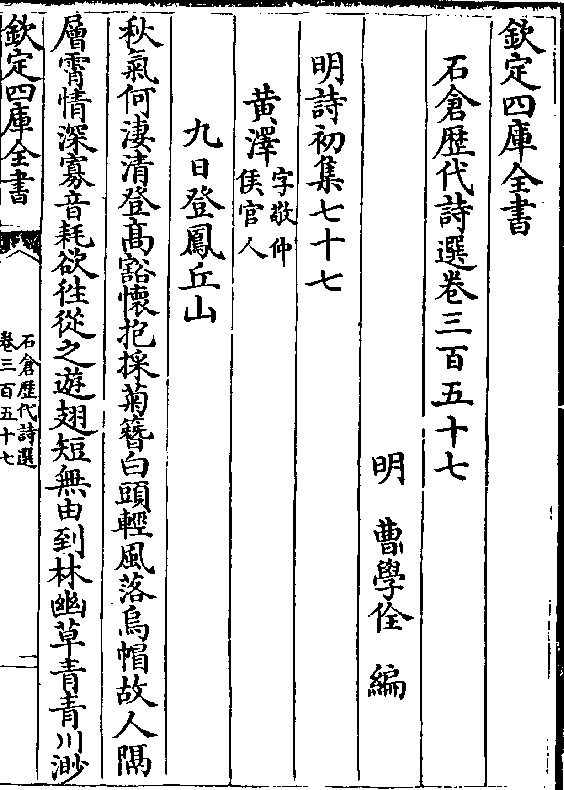 欽定四庫全書
石倉歴代詩選卷三百五十七
明　曹學佺　編
明詩初集七十七
黄澤字敬仲侯官人
九日登鳳丘山
秋氣何淒清登髙豁懐抱採菊簪白頭輕風落烏帽故人隔
層霄情深寡音耗欲徃從之遊翅短無由到林幽草青青川渺
欽定四庫全書
石倉歴代詩選
卷三百五十七
一